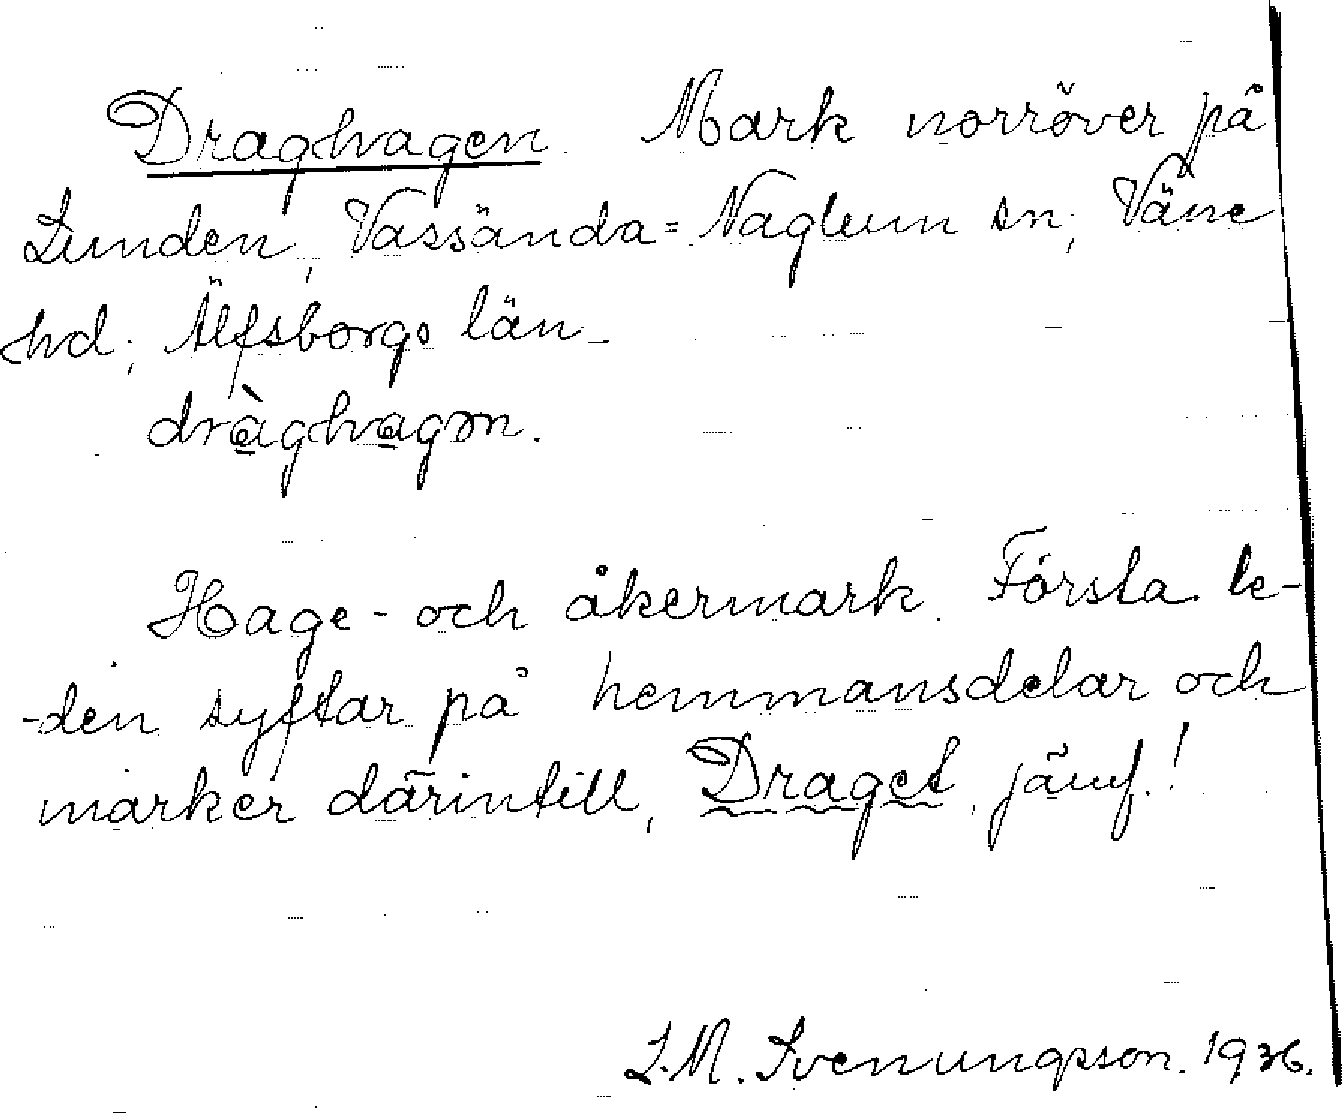 Draghagen. Mark norröver på
Lunden, Vassända=Naglum sn, Väne
hd, Älfsborgs län.
dràghagən.
Hage- och åkermark. Första le-
-den syftar på hemmansdelar och
marker därintill, Draget, jämf.!
S.M. Svenungsson. 1936.